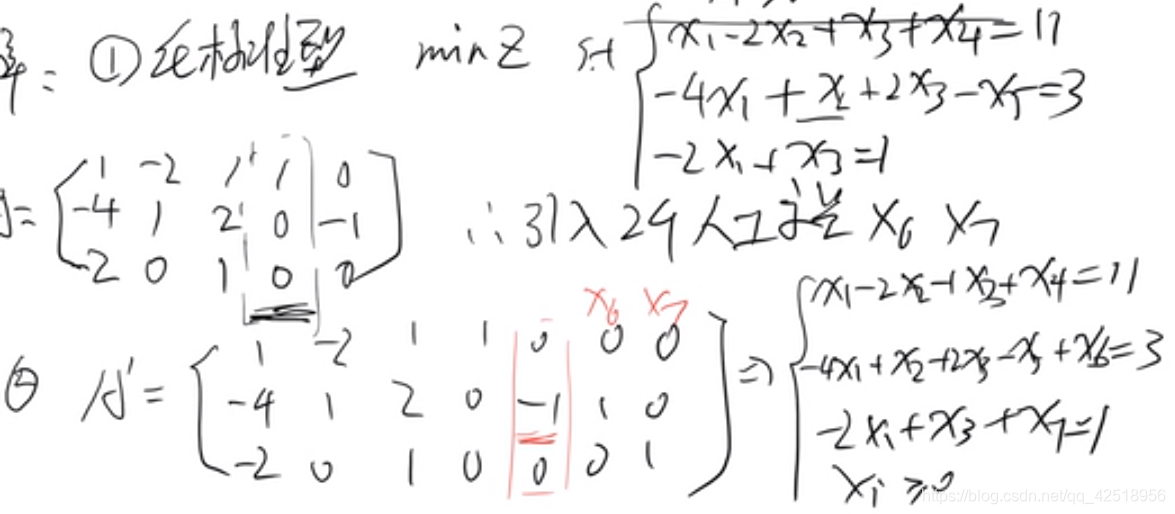 解: ① 标准模型 min Z s.t x₁-2x₂+x₃+x₄=11
-4x₁+x₂+2x₃-x₅=3
-2x₁+x₃=1
1 -2 1 1 0
-4 1 2 0 -1
-2 0 1 0 0
∴引入2个人工变量 x₆ x₇
x₆ x₇
② A'=
1 -2 1 1 0 0 0
-4 1 2 0 -1 1 0
-2 0 1 0 0 0 1
⇒ x₁-2x₂+x₃+x₄=11
-4x₁+x₂+2x₃-x₅+x₆=3
-2x₁+x₃+x₇=1
xᵢ≥0
https://blog.csdn.net/qq_42518956